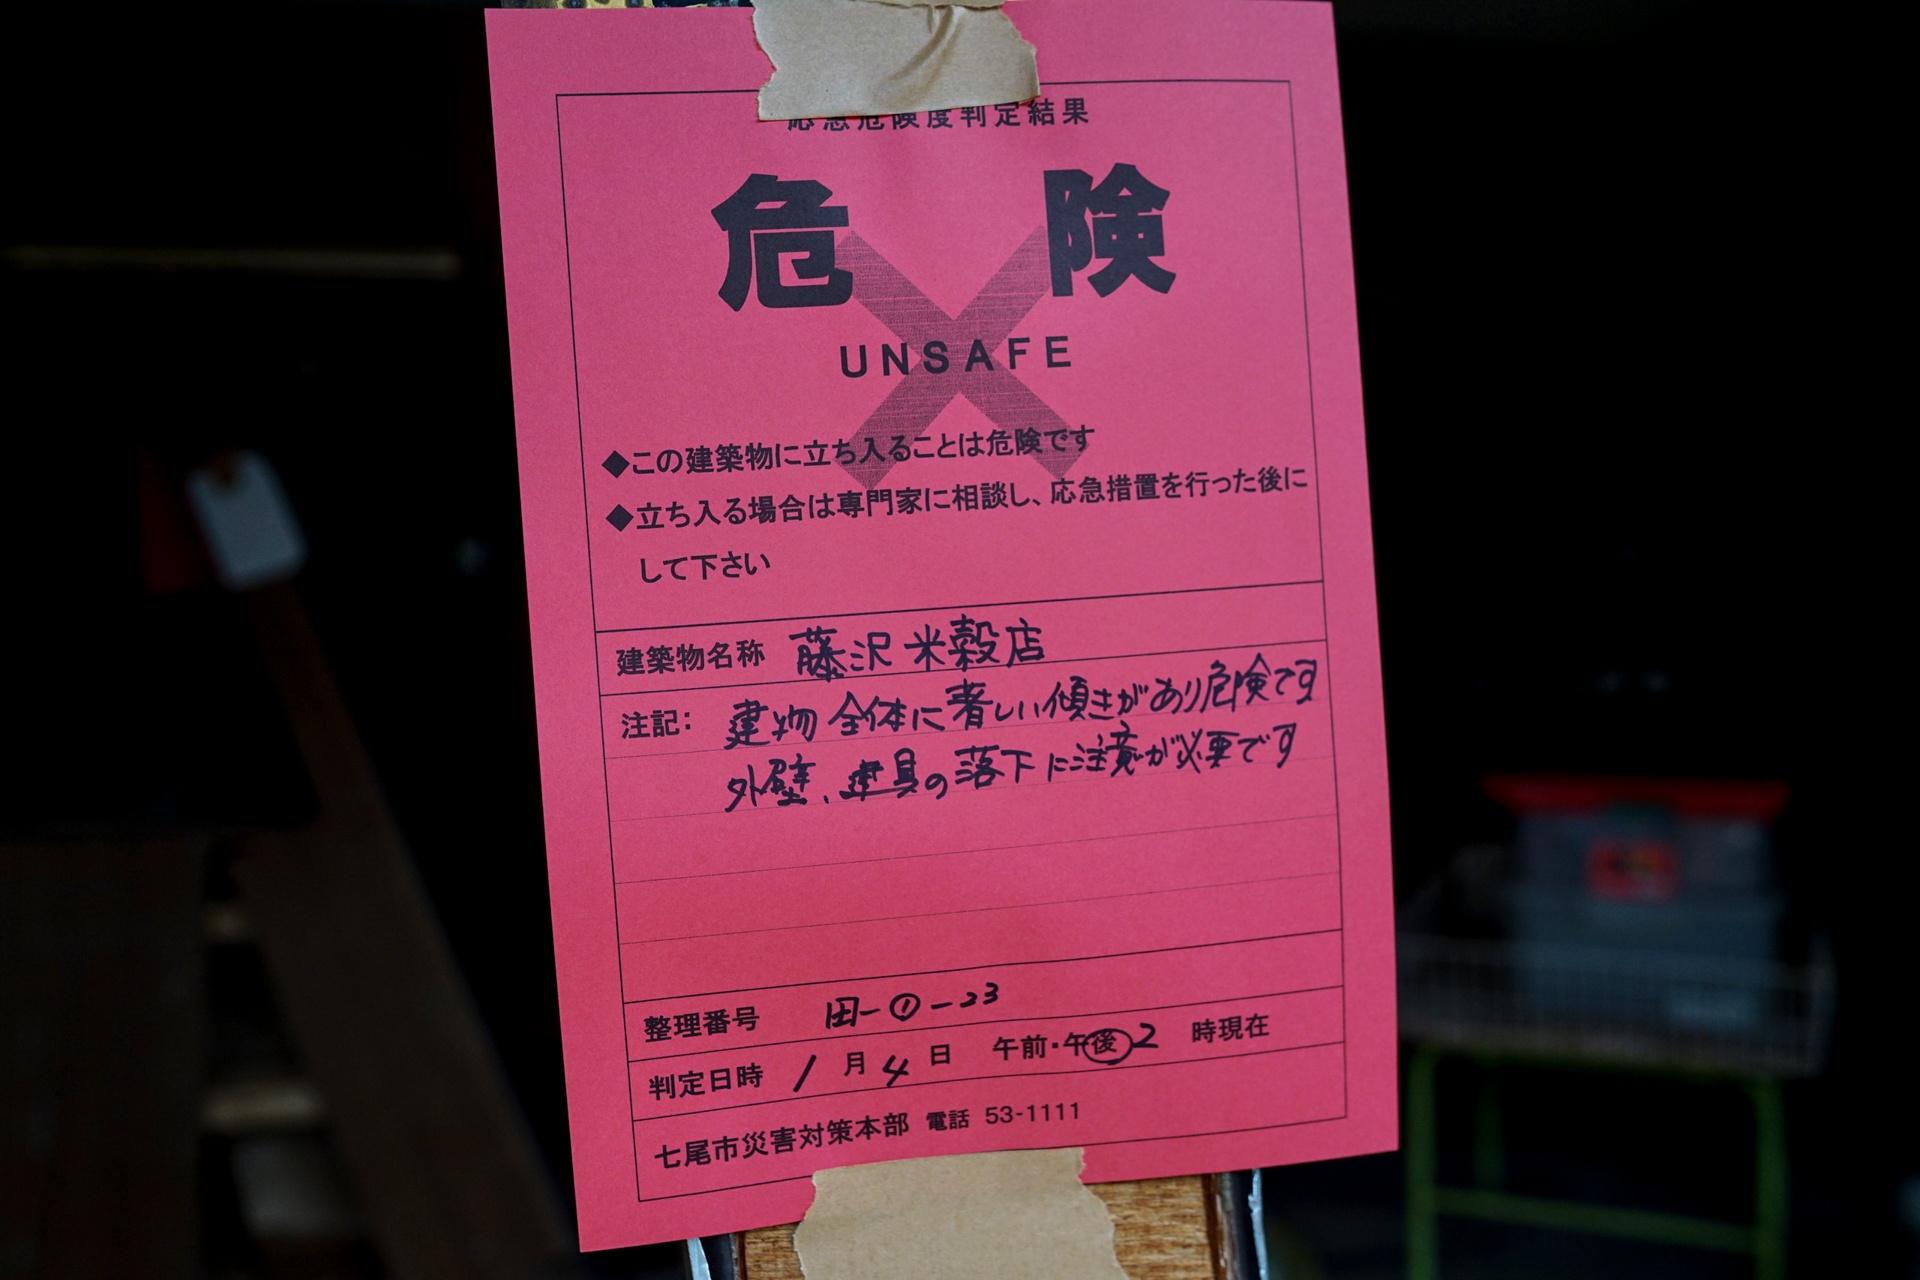 応急危険度判定結果
危険
UNSAFE
◆この建築物に立ち入ることは危険です
◆立ち入る場合は専門家に相談し、応急措置を行った後に
して下さい
建築物名称 藤沢米穀店
注記: 建物全体に著しい傾きがあり危険です
外壁、建具の落下に注意が必要です
整理番号 田-①-23
判定日時 1月4日 午前・午後2時現在
七尾市災害対策本部 電話 53-1111